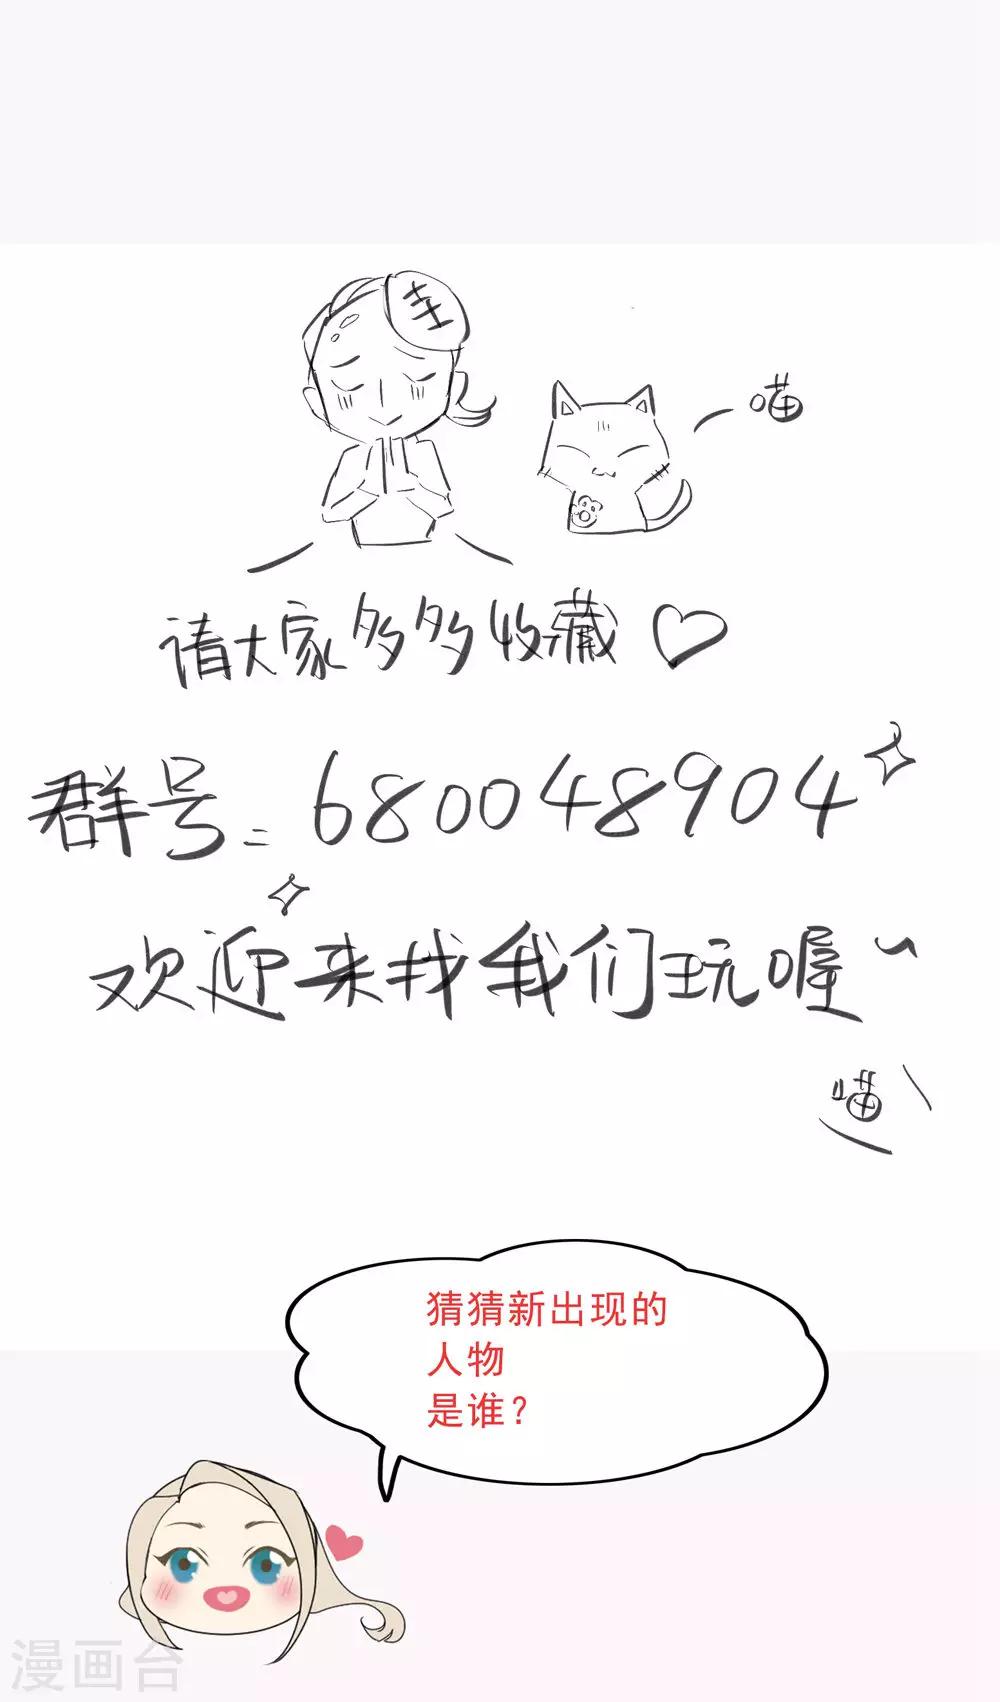 圭
喵
请大家多多收藏♡
群号：680048904
欢迎来找我们玩喔~
喵
猜猜新出现的
人物
是谁？
漫画台